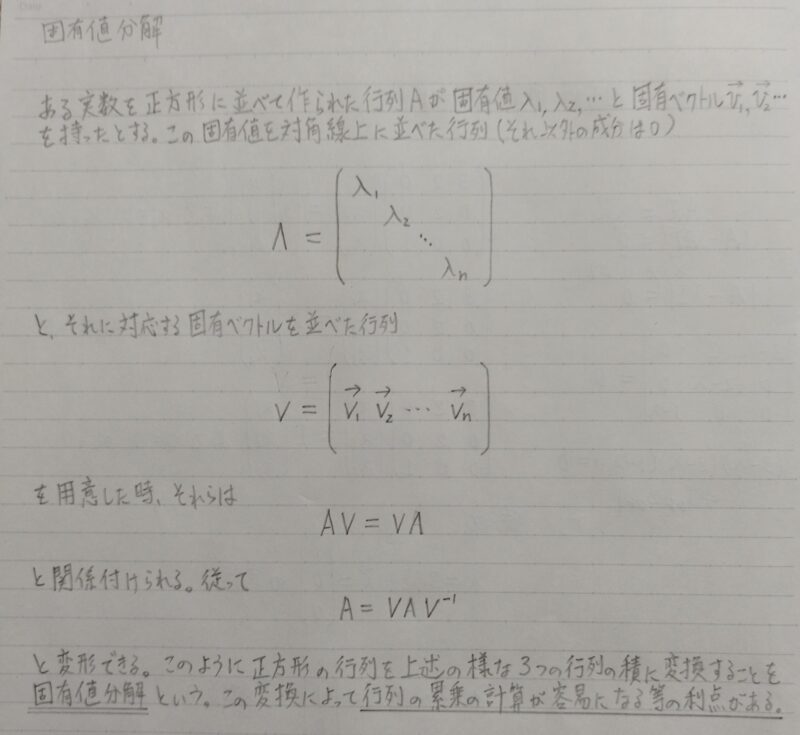 固有値分解
ある実数を正方形に並べて作られた行列Aが固有値λ₁, λ₂, … と固有ベクトルv⃗₁, v⃗₂…
を持ったとする。この固有値を対角線上に並べた行列(それ以外の成分は0)
Λ = (λ₁ λ₂ ⋱ λₙ)
と、それに対応する固有ベクトルを並べた行列
V = (v⃗₁ v⃗₂ … v⃗ₙ)
を用意した時、それらは
AV = VΛ
と関係付けられる。従って
A = VΛV⁻¹
と変形できる。このように正方形の行列を上述の様な3つの行列の積に変換することを
固有値分解という。この変換によって行列の累乗の計算が容易になる等の利点がある。